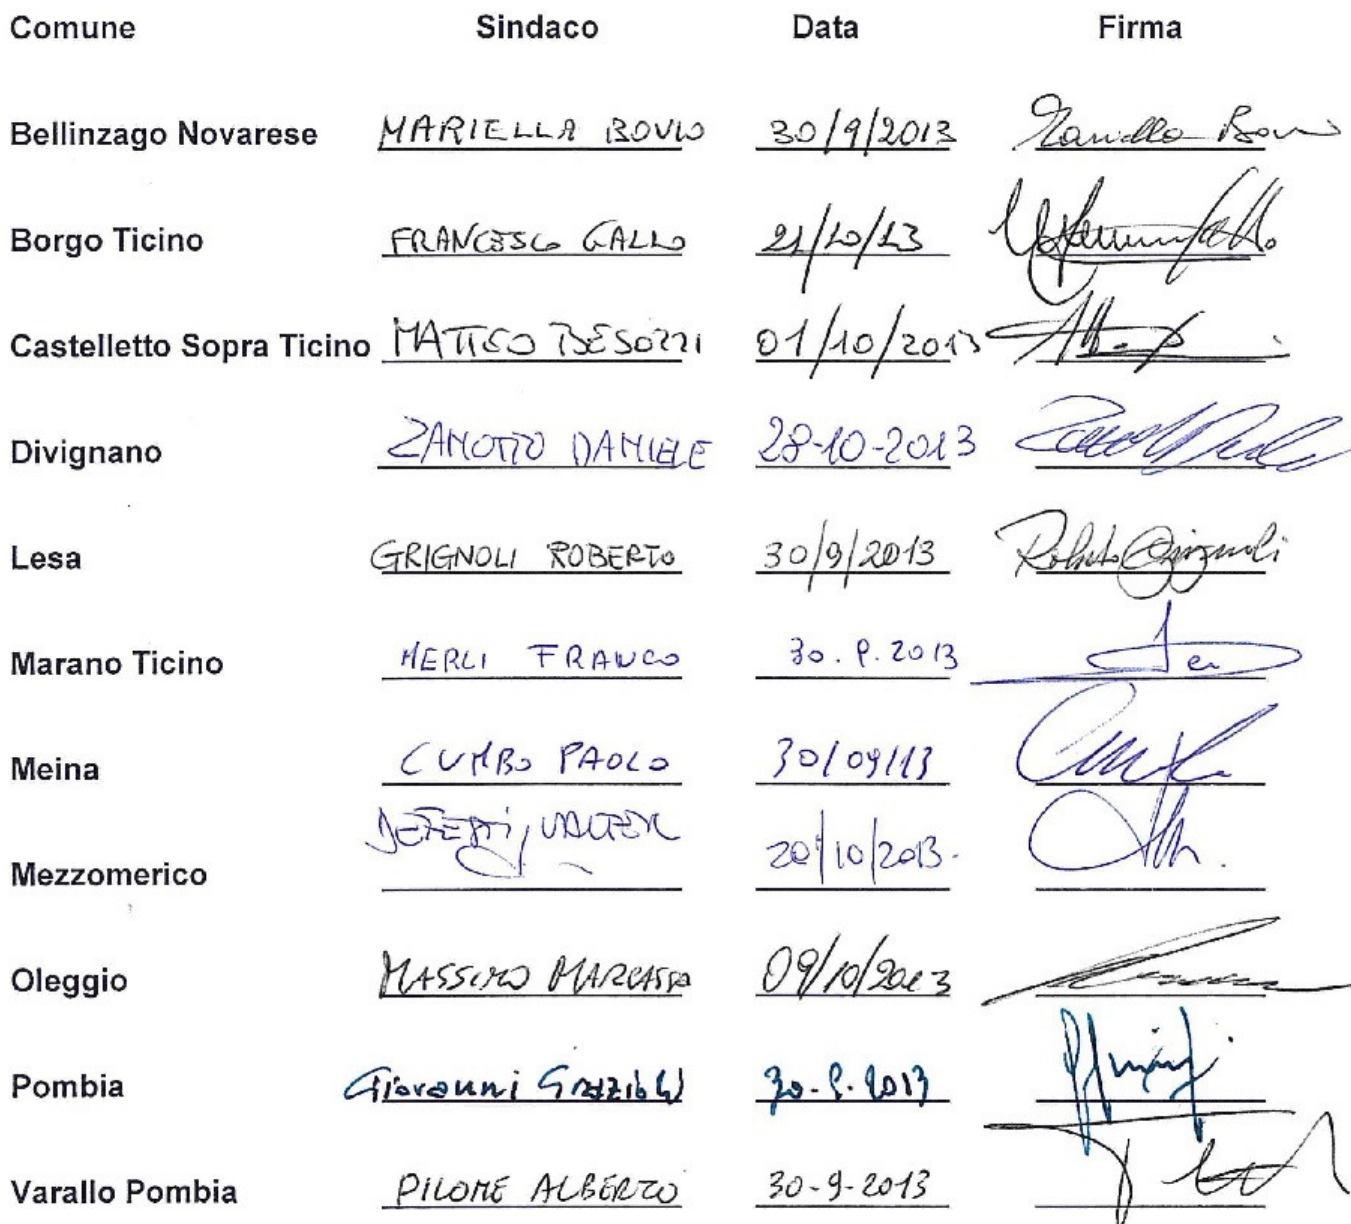 Comune Sindaco Data Firma
Bellinzago Novarese MARIELLA BOVIO 30/9/2013 Mariella Bovio
Borgo Ticino FRANCESCO GALLO 21/10/13
Castelletto Sopra Ticino MATTEO BESOZZI 01/10/2013
Divignano ZANOTTO DANIELE 28-10-2013
Lesa GRIGNOLI ROBERTO 30/9/2013 Roberto Grignoli
Marano Ticino MERLI FRANCO 30.9.2013
Meina CUMBO PAOLO 30/09/13
Mezzomerico 20/10/2013
Oleggio MASSIMO MARCASSA 09/10/2013
Pombia Giovanni Grazioli 30-9-2013
Varallo Pombia PILONE ALBERTO 30-9-2013